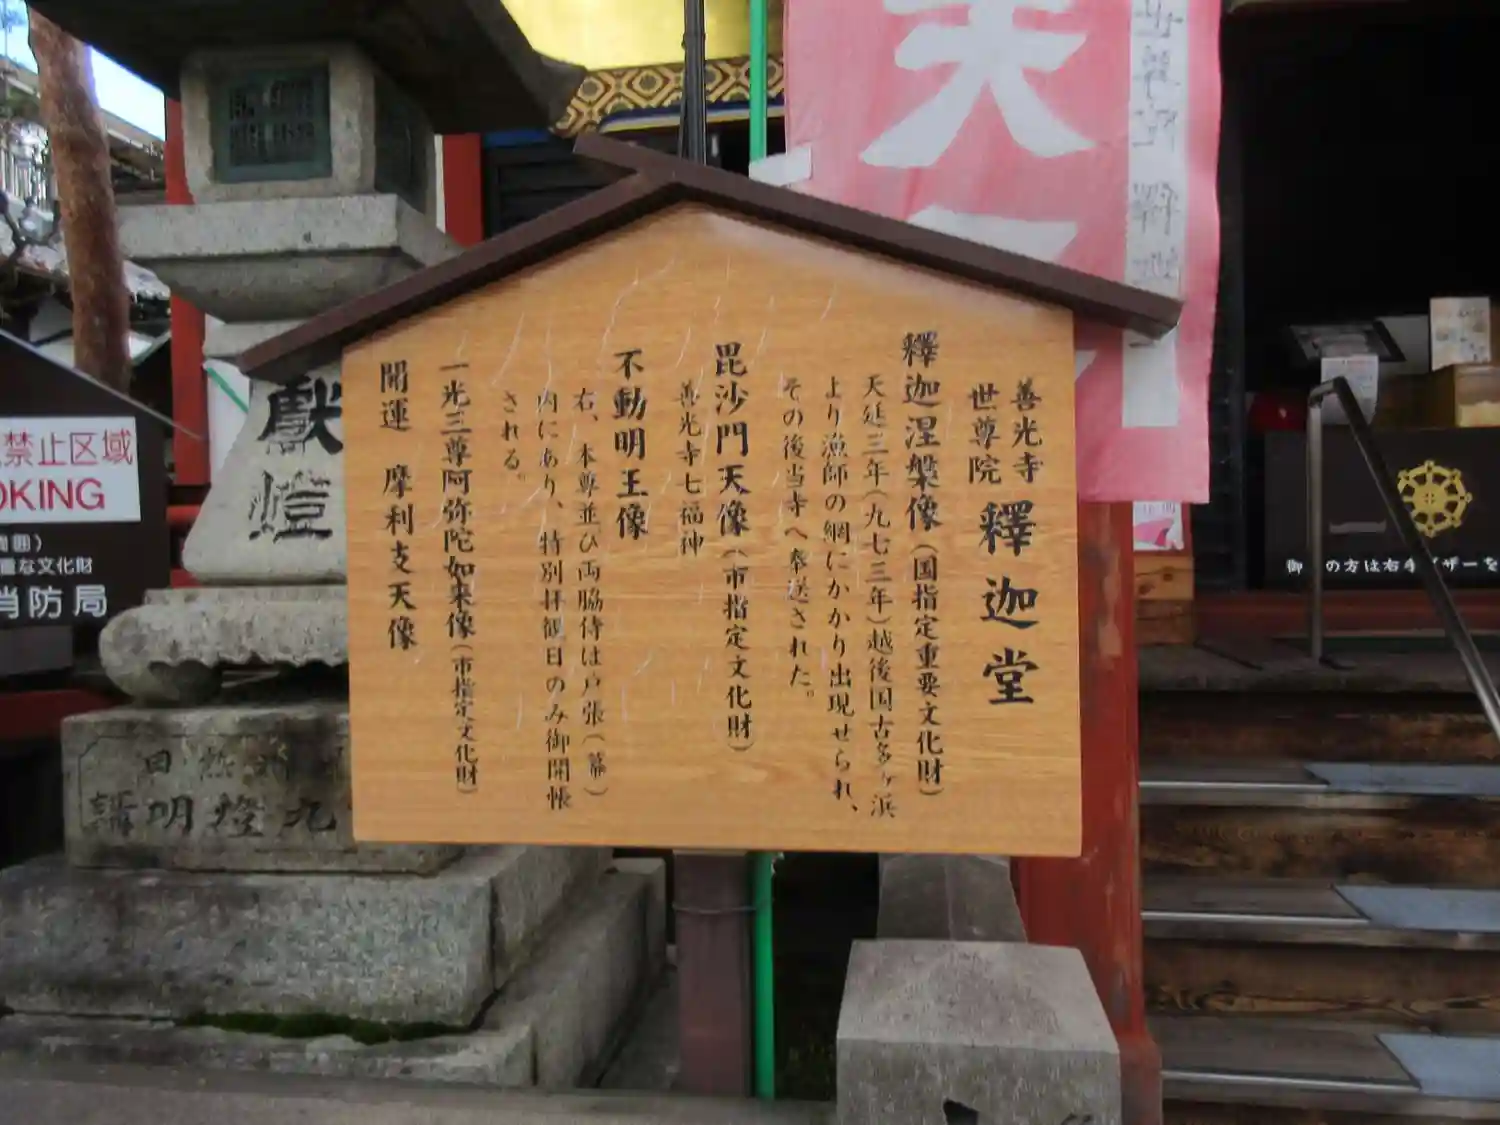 善光寺
世尊院
釋迦堂
釋迦涅槃像(国指定重要文化財)
天延三年(九七三年)越後国古多ヶ浜
より漁師の網にかかり出現せられ、
その後当寺へ奉送された。
毘沙門天像(市指定文化財)
善光寺七福神
不動明王像
右、本尊並び両脇侍は戸張(幕)
内にあり、特別拝観日のみ御開帳
される。
一光三尊阿弥陀如来像(市指定文化財)
開運 摩利支天像
献燈
禁止区域
OKING
重な文化財
消防局
天
御 の方は右手 ザーを